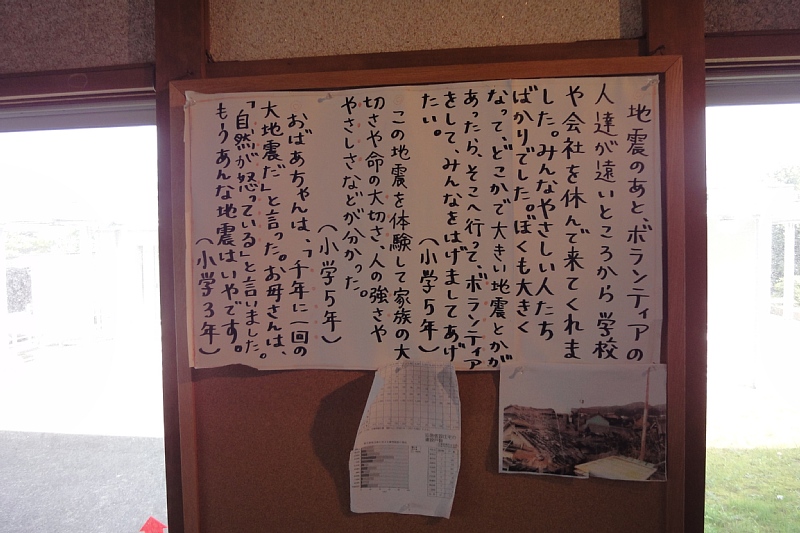 地震のあと、ボランティアの
人達が遠いところから学校
や会社を休んで来てくれま
した。みんなやさしい人たち
ばかりでした。ぼくも大きく
なって、どこかで大きい地震とかが
あったら、そこへ行って、ボランティア
をして、みんなをはげましてあげ
たい。
（小学５年）
この地震を体験して家族の大
切さや命の大切さ、人の強さや
やさしさなどが分かった。
（小学５年）
おばあちゃんは、「千年に一回の
大地震だ」と言った。お母さんは、
「自然が怒っている」と言いました。
もうあんな地震はいやです。
（小学３年）